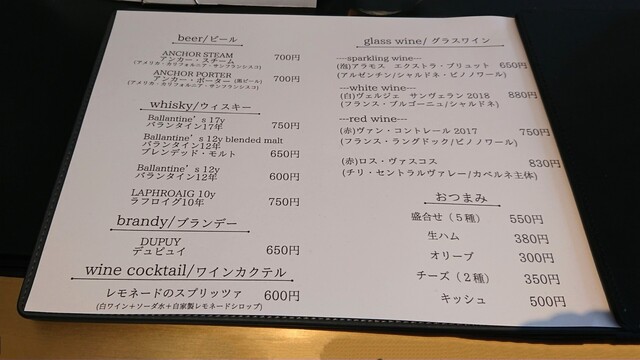 beer/ビール
ANCHOR STEAM
アンカー・スチーム 700円
(アメリカ・カリフォルニア・サンフランシスコ)
ANCHOR PORTER
アンカー・ポーター(黒ビール) 700円
(アメリカ・カリフォルニア・サンフランシスコ)
whisky/ウィスキー
Ballantine's 17y
バランタイン17年 750円
Ballantine's 12y blended malt
バランタイン12年
ブレンデッド・モルト 650円
Ballantine's 12y
バランタイン12年 600円
LAPHROAIG 10y
ラフロイグ10年 750円
brandy/ブランデー
DUPUY
デュピュイ 650円
wine cocktail/ワインカクテル
レモネードのスプリッツァ 600円
(白ワイン+ソーダ水+自家製レモネードシロップ)
glass wine/グラスワイン
---sparkling wine---
(泡)アラモス エクストラ・ブリュット 650円
(アルゼンチン/シャルドネ・ピノノワール)
---white wine---
(白)ヴェルジェ サンヴェラン 2018 880円
(フランス・ブルゴーニュ/シャルドネ)
---red wine---
(赤)ヴァン・コントレール2017 750円
(フランス・ラングドック/ピノノワール)
(赤)ロス・ヴァスコス 830円
(チリ・セントラルヴァレー/カベルネ主体)
おつまみ
盛合せ(5種) 550円
生ハム 380円
オリーブ 300円
チーズ(2種) 350円
キッシュ 500円